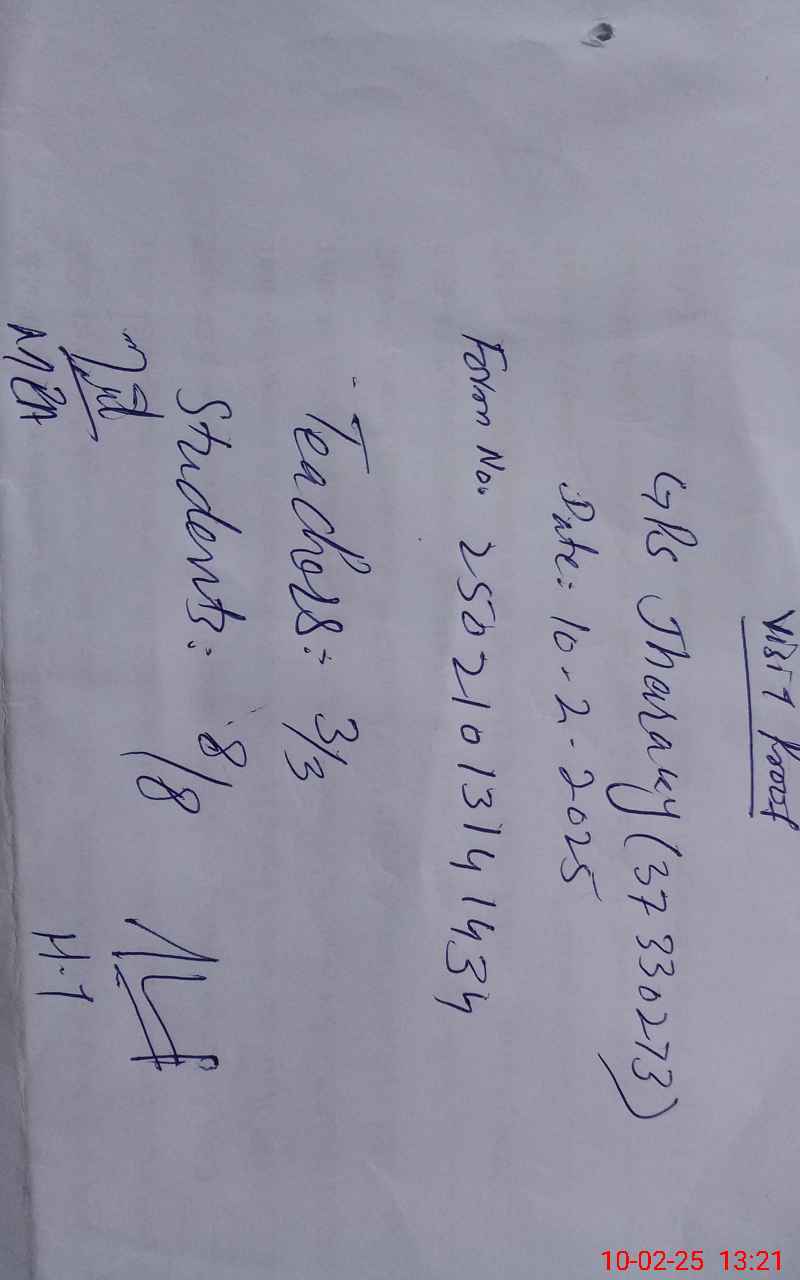 Visit Proof
GPS Tharaky (37330273)
Date: 10-2-2025
Form No. 25021013141434
Teachers: 3/3
Students: 8/8
MEA
H.T
10-02-25 13:21